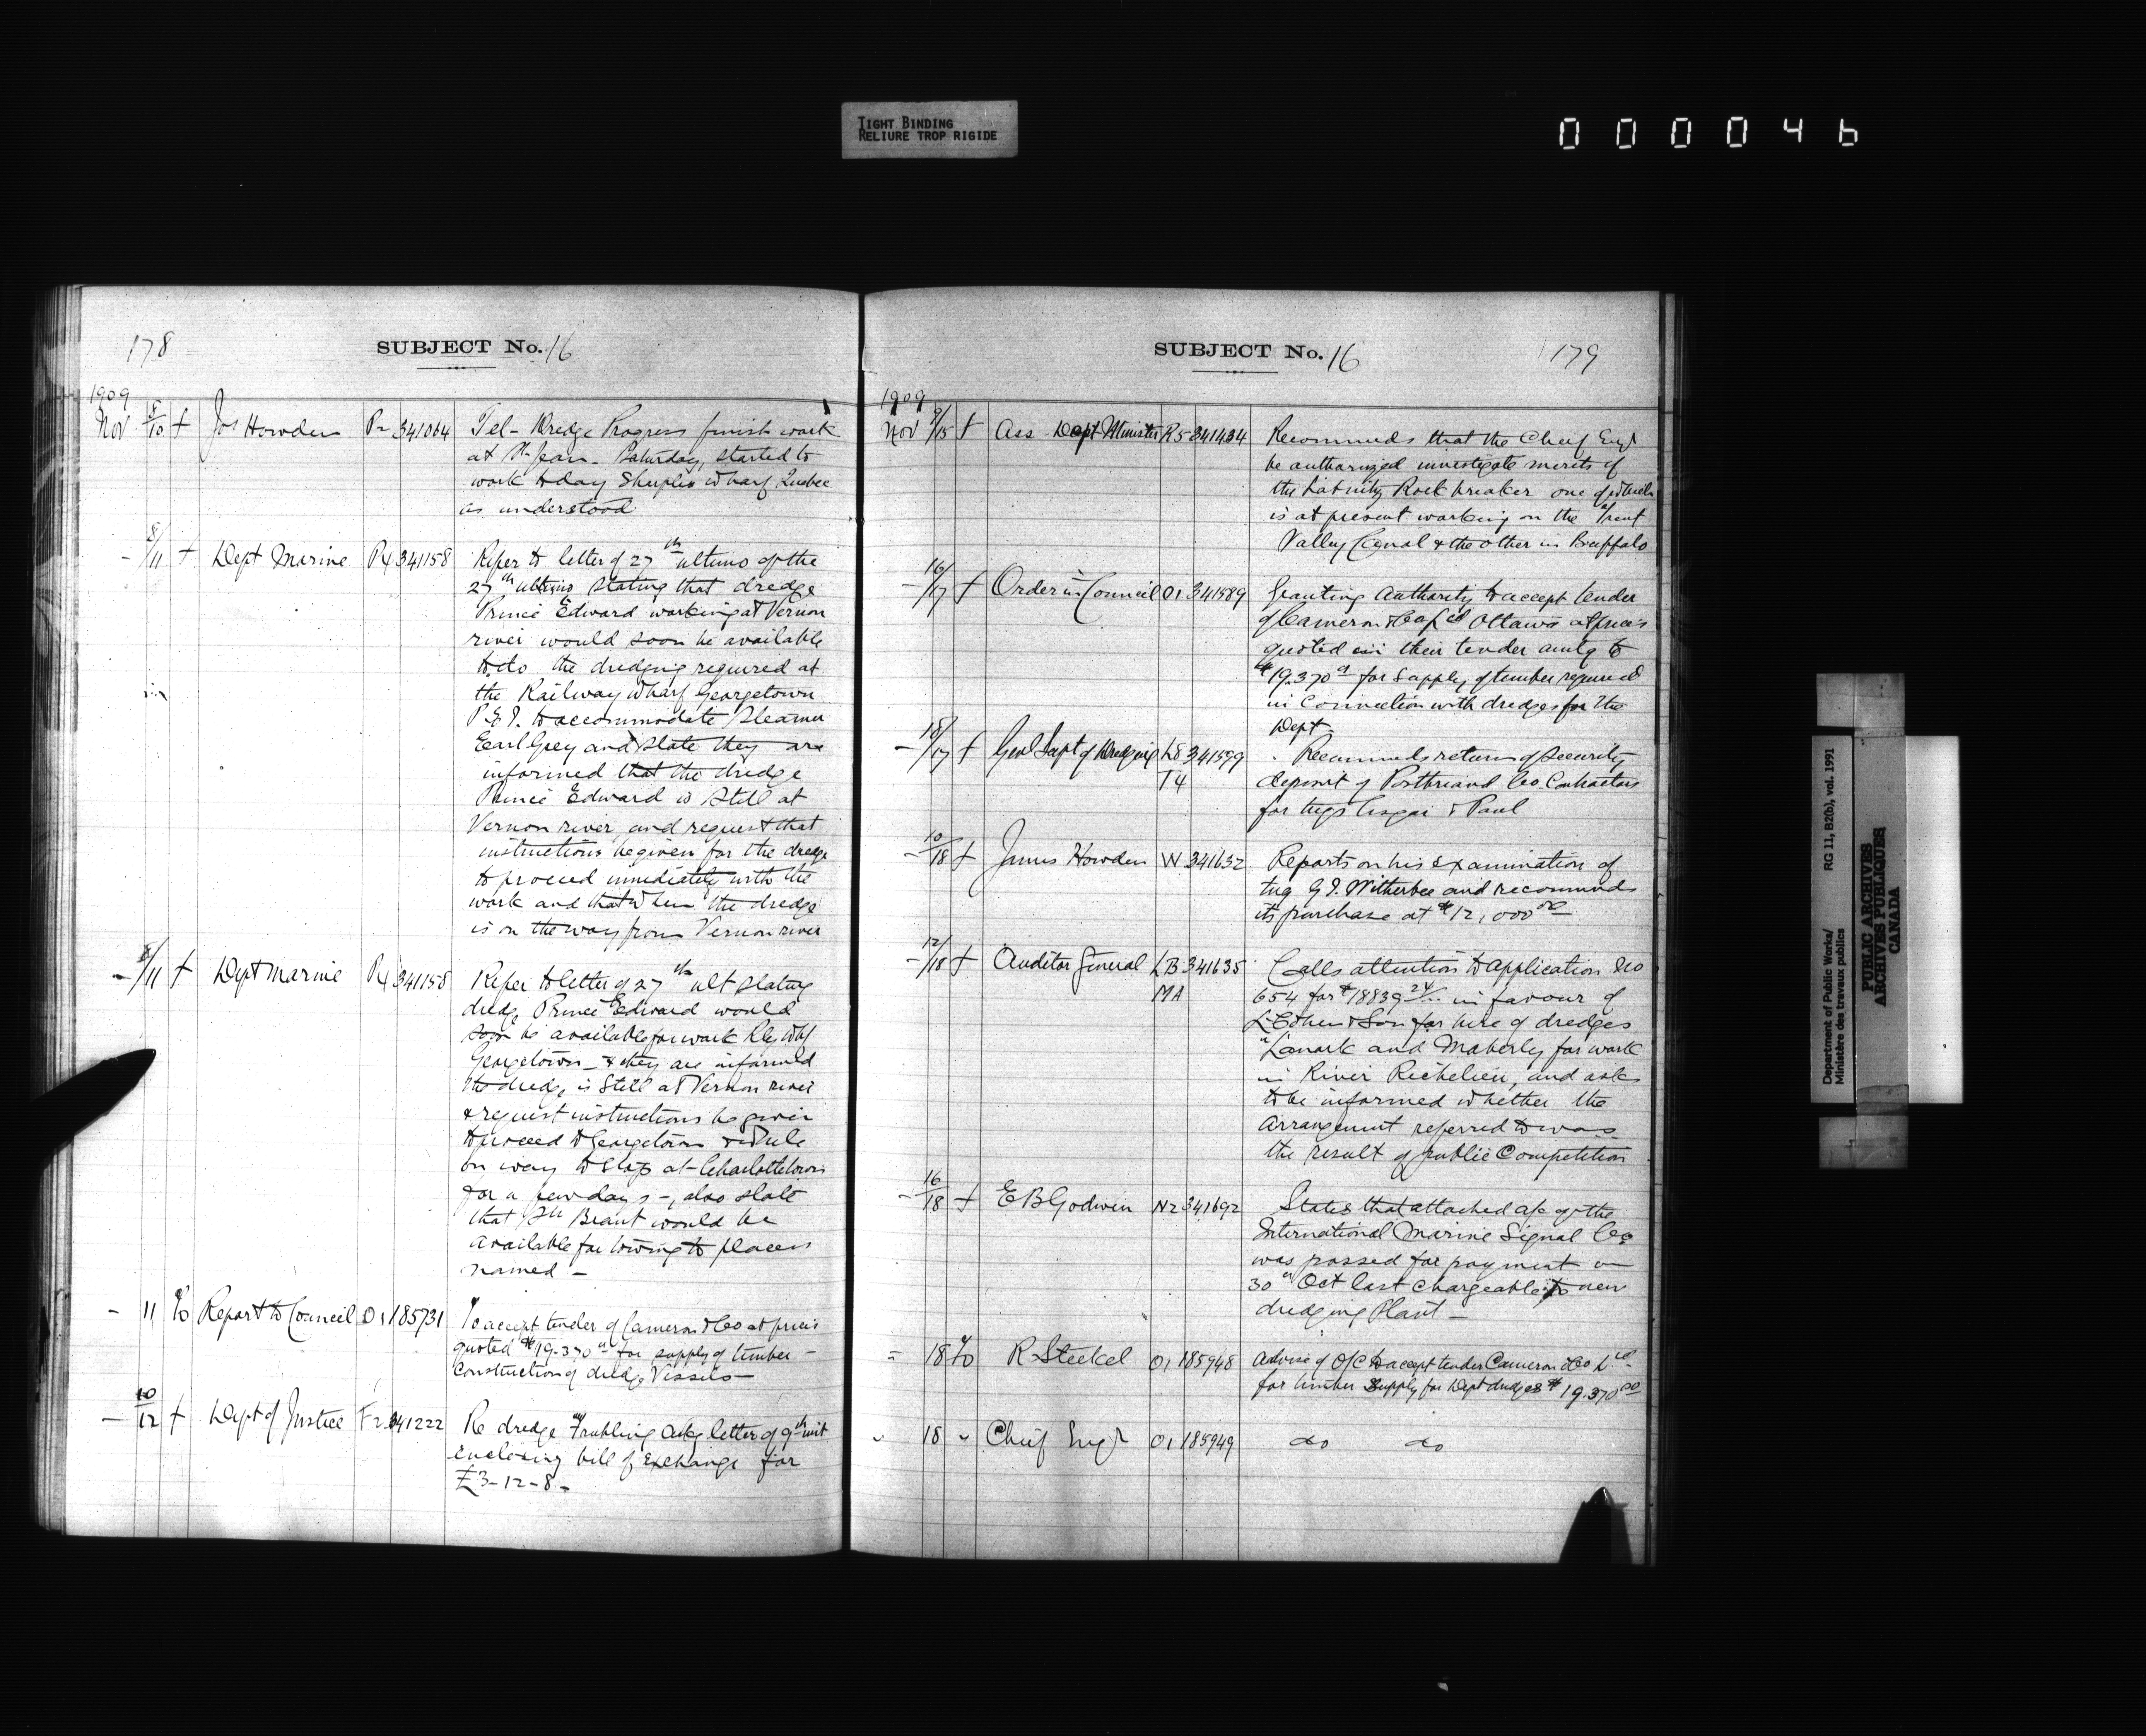 TIGHT BINDING
RELIURE TROP RIGIDE
000046
178
SUBJECT No. 16
1909
Nov 8/10 f Jos Howden P2 341064 Tel - Dredge Progress finish work
at St. Jean - Saturday, started to
work today Sharples Wharf Quebec
as understood
- 8/11 f Dept Marine P4 341158 Refer to letter of 27th ultimo of the
27th ultimo stating that dredge
Prince Edward working at Vernon
river would soon be available
to do the dredging required at
the Railway Wharf Georgetown
P.E.I. to accommodate Steamer
Earl Grey and state they are
informed that the dredge
Prince Edward is still at
Vernon river, and request that
instructions be given for the dredge
to proceed immediately with the
work and that when the dredge
is on the way from Vernon river
- 8/11 f Dept Marine P4 341158 Refer to letter of 27th ult stating
dredge Prince Edward would
soon be available for work Rly Whf
Georgetown - & they are informed
the dredge is still at Vernon river
& request instructions be given
to proceed to Georgetown & while
on way to stop at Charlottetown
for a few days -, also state
that Brant would be
available for towing to places
named -
- 11 % Report to Council O1 185731 To accept tender of Cameron & Co at prices
quoted $19.370 for supply of timber -
Construction of dredge Vessels -
- 10/12 f Dept of Justice F2 341222 Re dredge Fruhling ackg letter of 9th inst
enclosing bill of Exchange for
£3-12-8-
SUBJECT No. 16 179
1909
Nov 9/15 f Ass Dept Minister R5 341434 Recommends that the Chief Engr
be authorized investigate merits of
the Lobnitz Rock breaker one of which
is at present working on the Trent
Valley Canal & the other in Buffalo
- 16/17 f Order in Council O1 341589 Granting Authority to accept tender
of Cameron & Co Ltd Ottawa at prices
quoted in their tender amtg to
$19.370 for supply of timber required
in Connection with dredges for the
Dept -
- 18/17 f Genl Supt of Dredging L8 341599 Recommends return of security
T4 deposit of Co. Contractors
for tugs & Paul
- 10/18 f James Howden W 341632 Reports on his examination of
tug G.I. Witherbee and recommends
its purchase at $12,000.00
- 12/18 f Auditor General LB 341635 Calls attention to application No
MA 654 for $18839.24 in favour of
& Son for hire of dredges
"Lanark and Maberly for work
in River Richelieu, and asks
to be informed whether the
Arrangement referred to was
the result of public Competition
- 16/18 f E B Godwin N2 341692 States that attached a/c of the
International Marine Signal Co
was passed for payment on
30th Oct last chargeable to new
dredging Plant -
= 18 % R Steckel O1 185948 Advise of O/C to accept tender Cameron & Co Ltd
for timber supply for Dept dredges $19.370.00
" 18 " Chief Engr O1 185949 do do
Department of Public Works/
Ministère des travaux publics
RG 11, B2(b), vol. 1991
PUBLIC ARCHIVES
ARCHIVES PUBLIQUES
CANADA